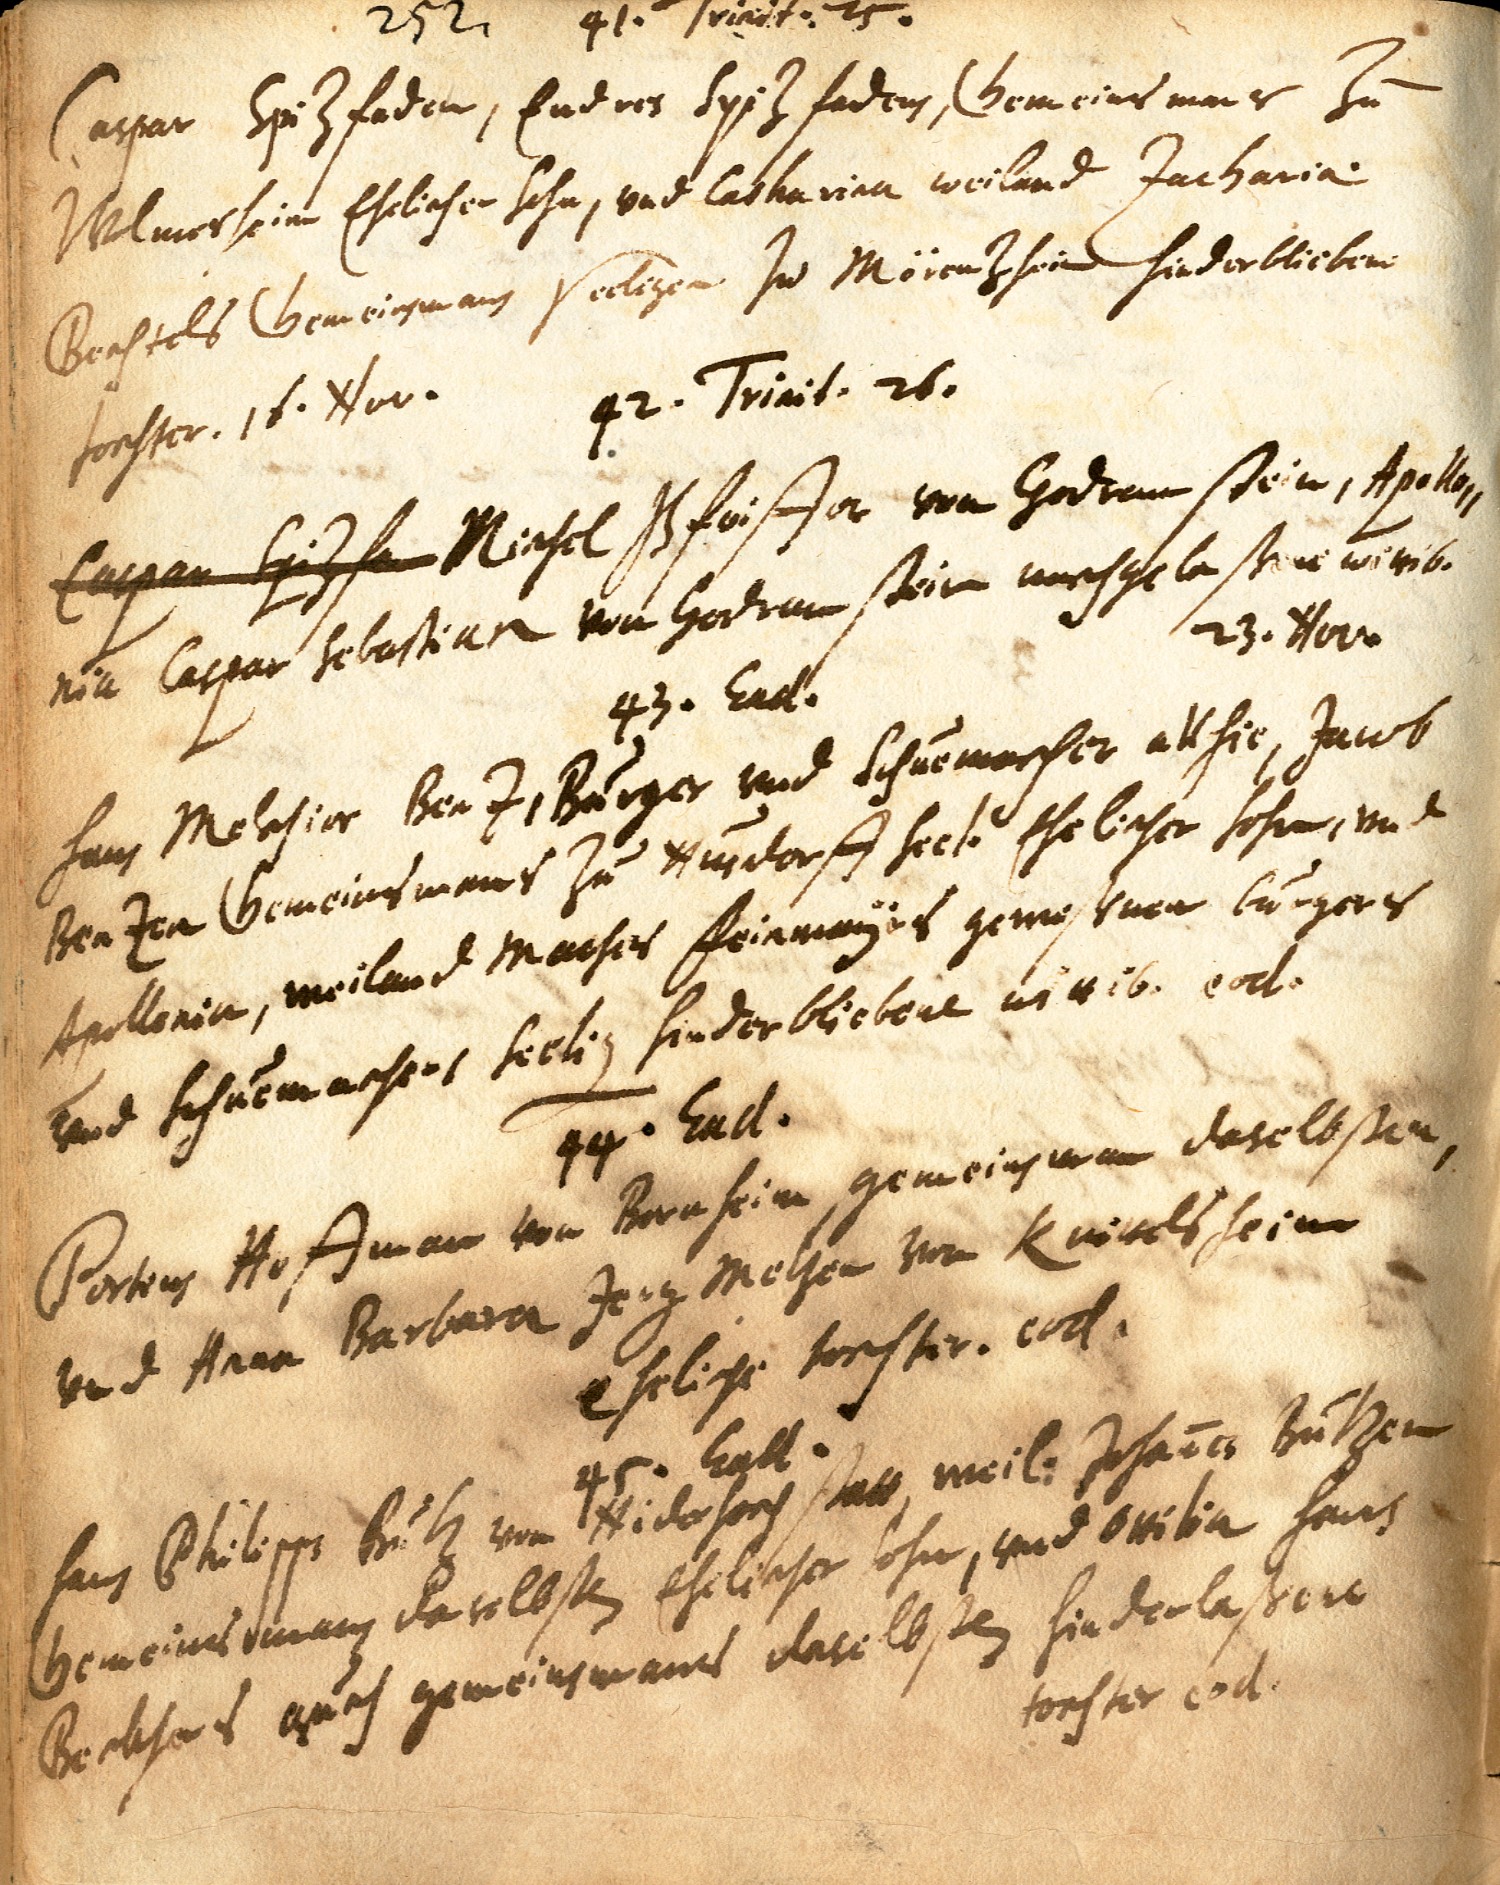 252. 41. Trinit. 25.
Caspar Spitzfaden, Endres Spitzfadens, Gemeinsmans Zu
Wolmersheim Ehelicher Sohn, vnd Catharina weiland Zachariae
Bechtels Gemeinsmans seeligen zu Mörentzheim hinderbliebene
tochter. 16. Nov.
42. Trinit. 26.
Caspar Spitzfa Michel Pfeiffer von Godramstein, Apollo„
nia Caspar Sebastian von Godramstein nachgelaßene wittib.
23. Nov.
43. Ead.
Hans Melchior Bentz, Burger vnd Schuemacher allhie, Jacob
Bentzen Gemeinsmans Zu Nusdorff seel. Ehelicher Sohn, vnd
Apollonia, weiland Mathes Steinmayers geweßnen burgers
vnd Schuemachers seelig hinderbliebene wittib. eod.
44. Ead.
Hoffman von Bornheim, gemeinsman daselbsten,
vnd Anna Barbara Jerg Meltzen von Knittelsheim
eheliche tochter. eod.
45. Ead.
Hans Philipps Butz von Niderhochstatt, weil. Johannes Butzen
Gemeinsmans daselbsten Ehelicher sohn, vnd Ottilia Hans
auch gemeinsmans daselbsten hinderlaßene
tochter eod.